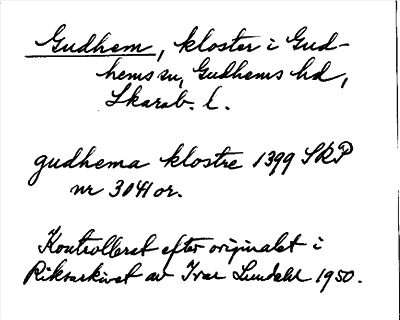 Gudhem, kloster i Gud-
hems sn, Gudhems hd,
Skarab. l.
gudhema klostre 1399 SRP
nr 3041 or.
Kontrollerat efter originalet i
Riksarkivet av Ivar Lundahl 1950.